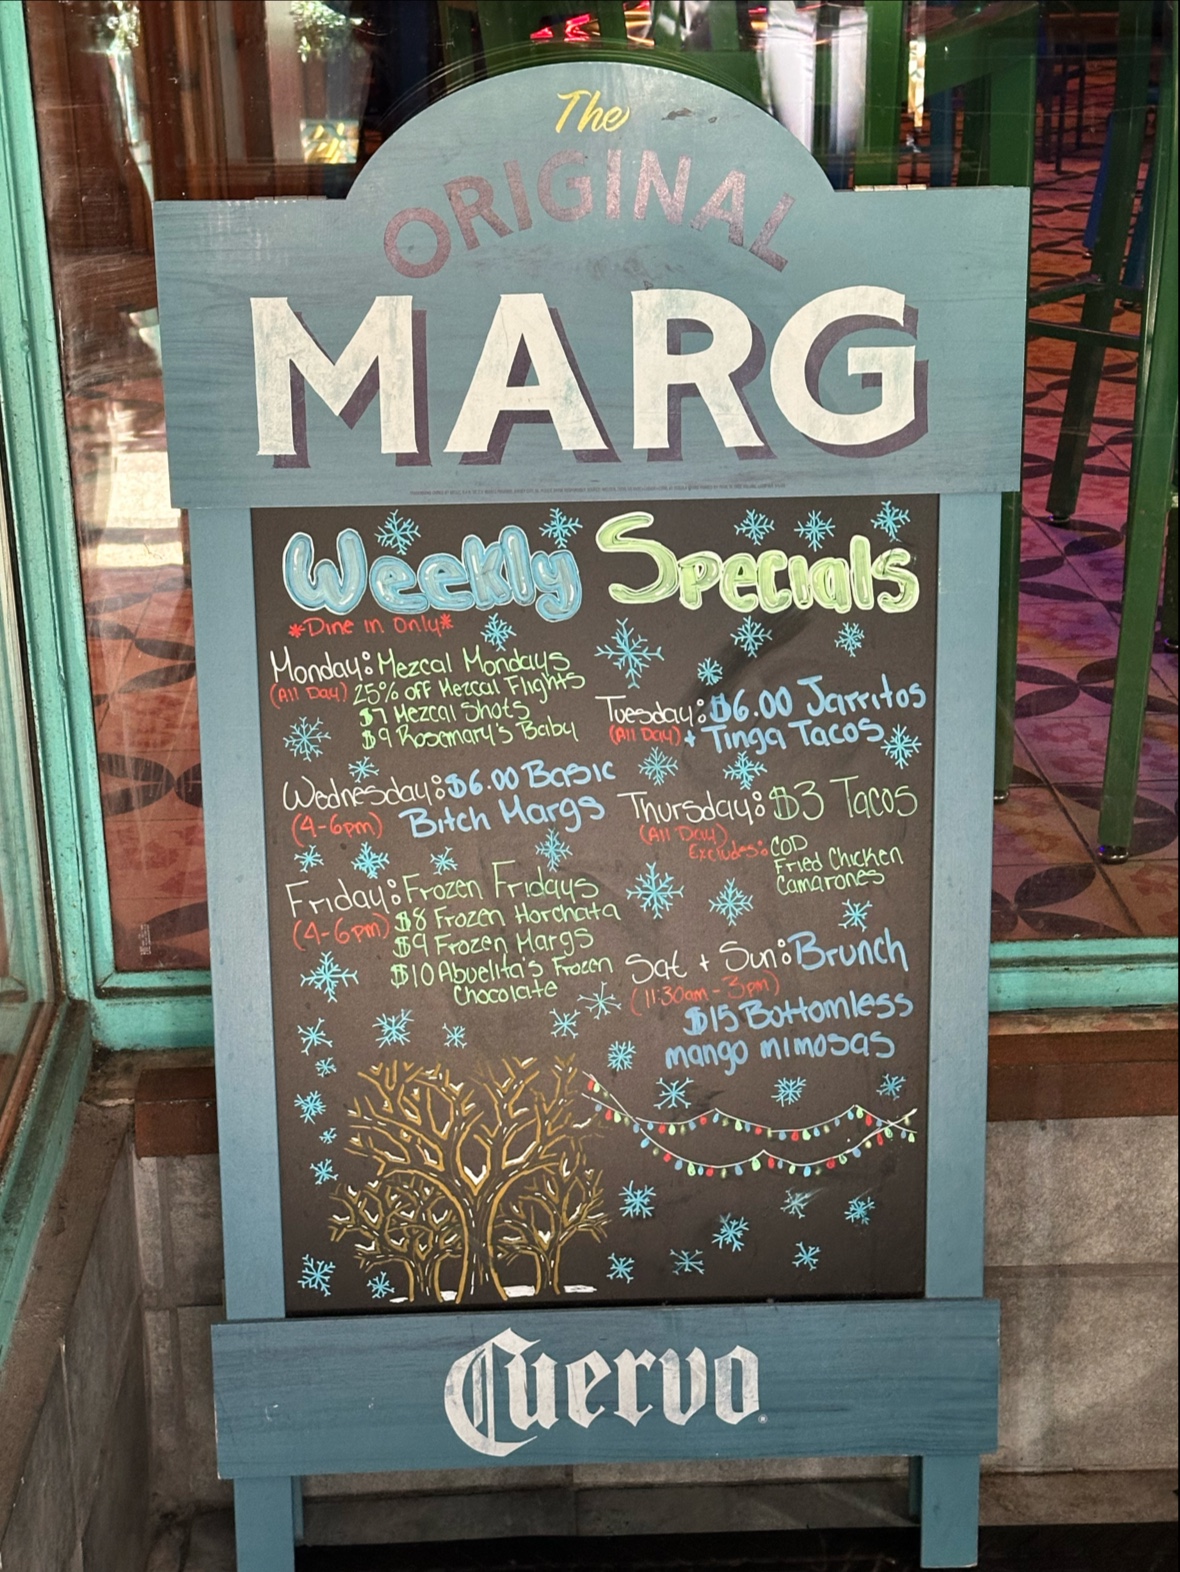 The
ORIGINAL
MARG
Weekly Specials
*Dine in Only*
Monday: Mezcal Mondays
(All Day) 25% off Mezcal Flights
$7 Mezcal Shots
$9 Rosemary's Baby
Tuesday: $6.00 Jarritos
(All Day) + Tinga Tacos
Wednesday: $6.00 Basic
(4-6pm) Bitch Margs
Thursday: $3 Tacos
(All Day)
Excludes: COD
Fried Chicken
Camarones
Friday: Frozen Fridays
(4-6pm) $8 Frozen Horchata
$9 Frozen Margs
$10 Abuelita's Frozen
Chocolate
Sat + Sun: Brunch
(11:30am-3pm)
$15 Bottomless
mango mimosas
Cuervo®